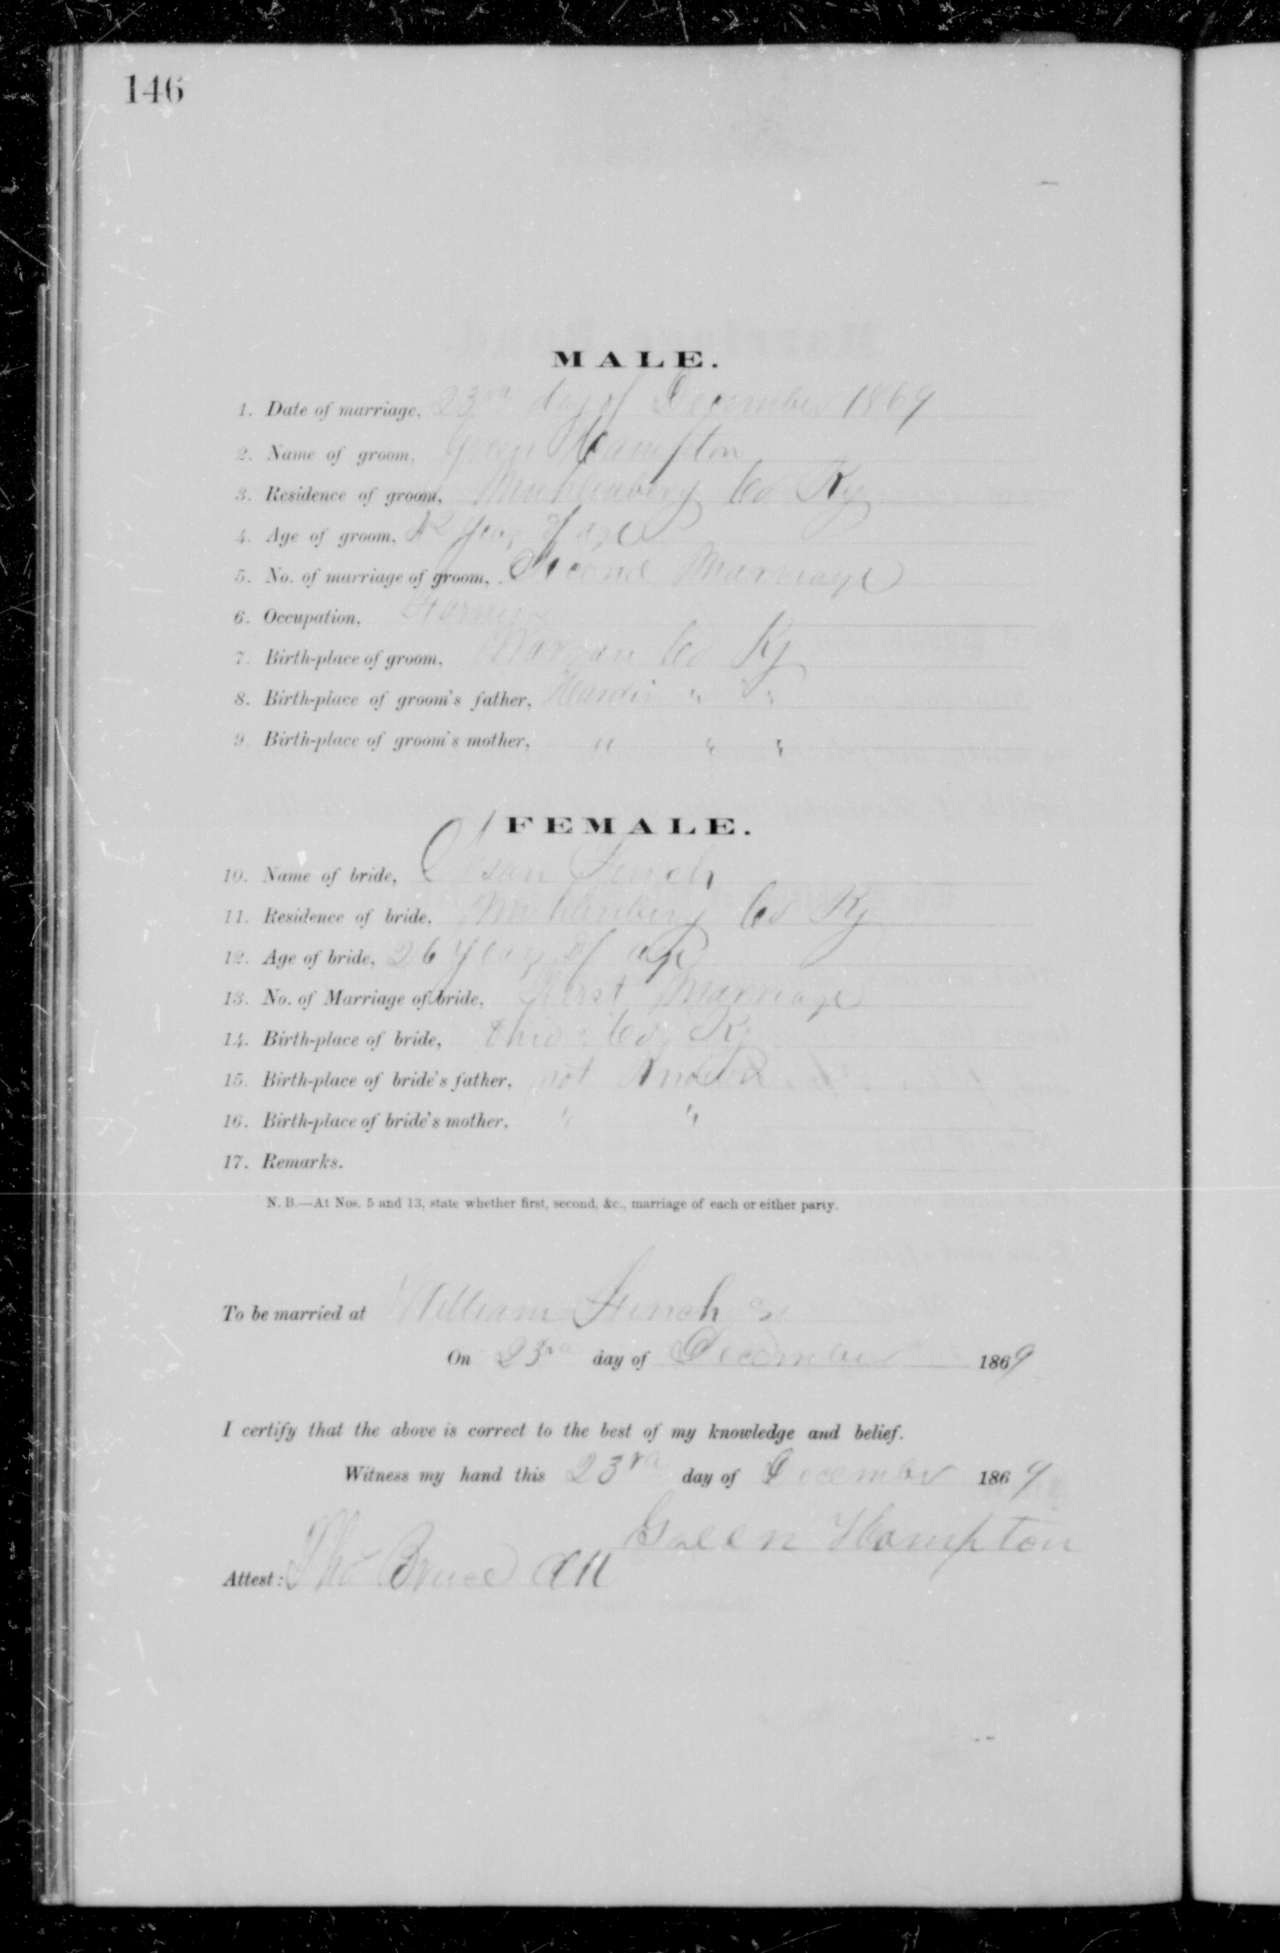 146
MALE.
1. Date of marriage, 23rd day of December 1869
2. Name of groom, Green Hampton
3. Residence of groom, Muhlenberg Co Ky
4. Age of groom, 42 years of age
5. No. of marriage of groom, Second Marriage
6. Occupation, Farmer
7. Birth-place of groom, Warren Co Ky
8. Birth-place of groom's father, Hardin " "
9. Birth-place of groom's mother, " " "
FEMALE.
10. Name of bride, Susan
11. Residence of bride, Muhlenberg Co Ky
12. Age of bride, 26 years of age
13. No. of Marriage of bride, First Marriage
14. Birth-place of bride, Ohio Co Ky
15. Birth-place of bride's father, not Known
16. Birth-place of bride's mother, " "
17. Remarks.
N. B.—At Nos. 5 and 13, state whether first, second, &c., marriage of each or either party.
To be married at William
On 23rd day of December 1869
I certify that the above is correct to the best of my knowledge and belief.
Witness my hand this 23rd day of December 1869
Green Hampton
Attest: Tho Bruce